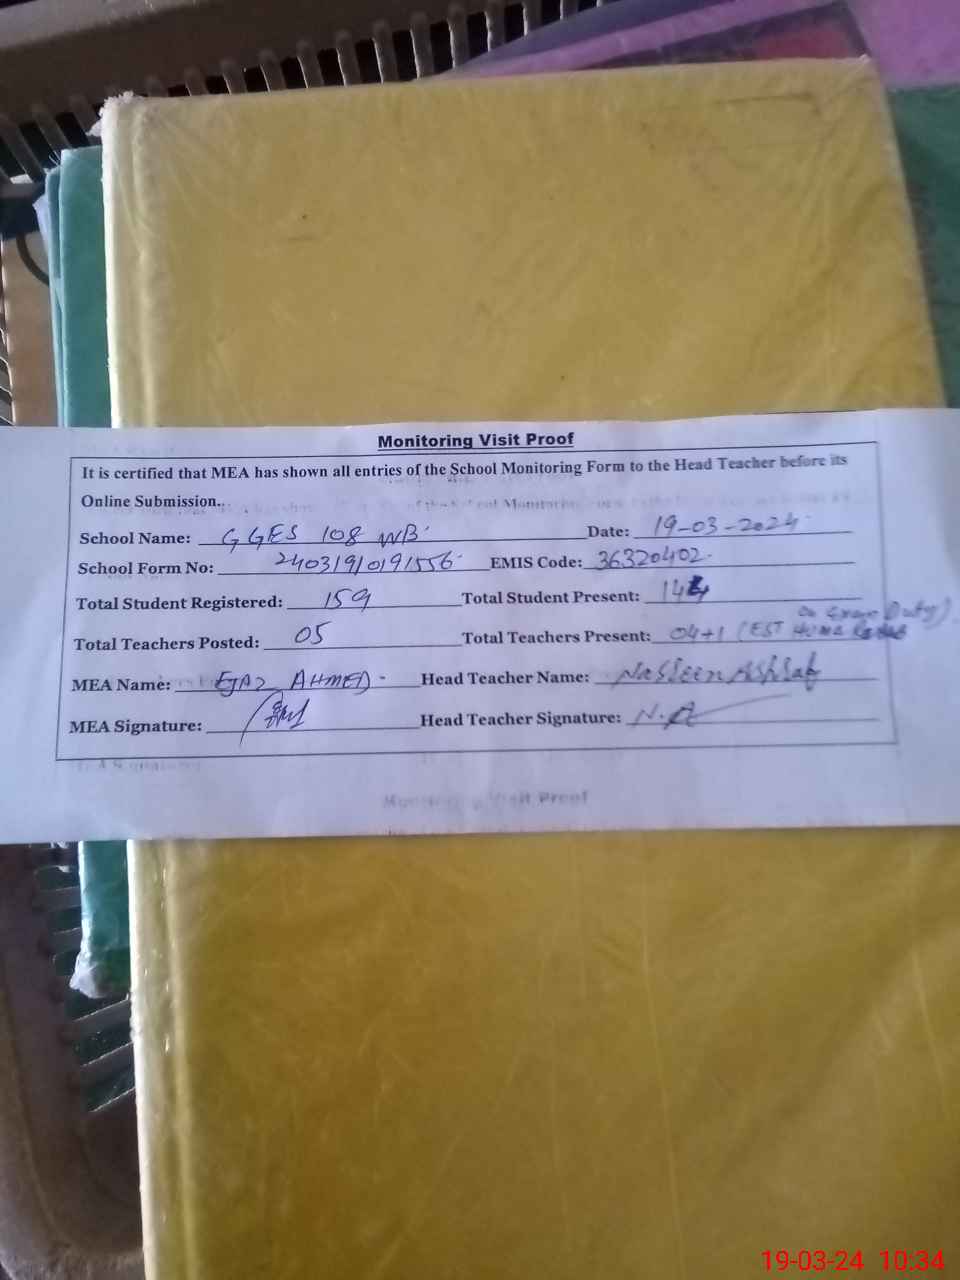 Monitoring Visit Proof
It is certified that MEA has shown all entries of the School Monitoring Form to the Head Teacher before its
Online Submission..
School Name: GGES 108 WB Date: 19-03-2024
School Form No: 2403191019 1556 EMIS Code: 36320402
Total Student Registered: 159 Total Student Present: 144
on Exam Duty)
Total Teachers Posted: 05 Total Teachers Present: 04+1 (EST Huma
MEA Name: EJAZ AHMED Head Teacher Name: Nasreen Ashraf
MEA Signature: Head Teacher Signature: N.A
Monitoring Visit Proof
19-03-24 10:34